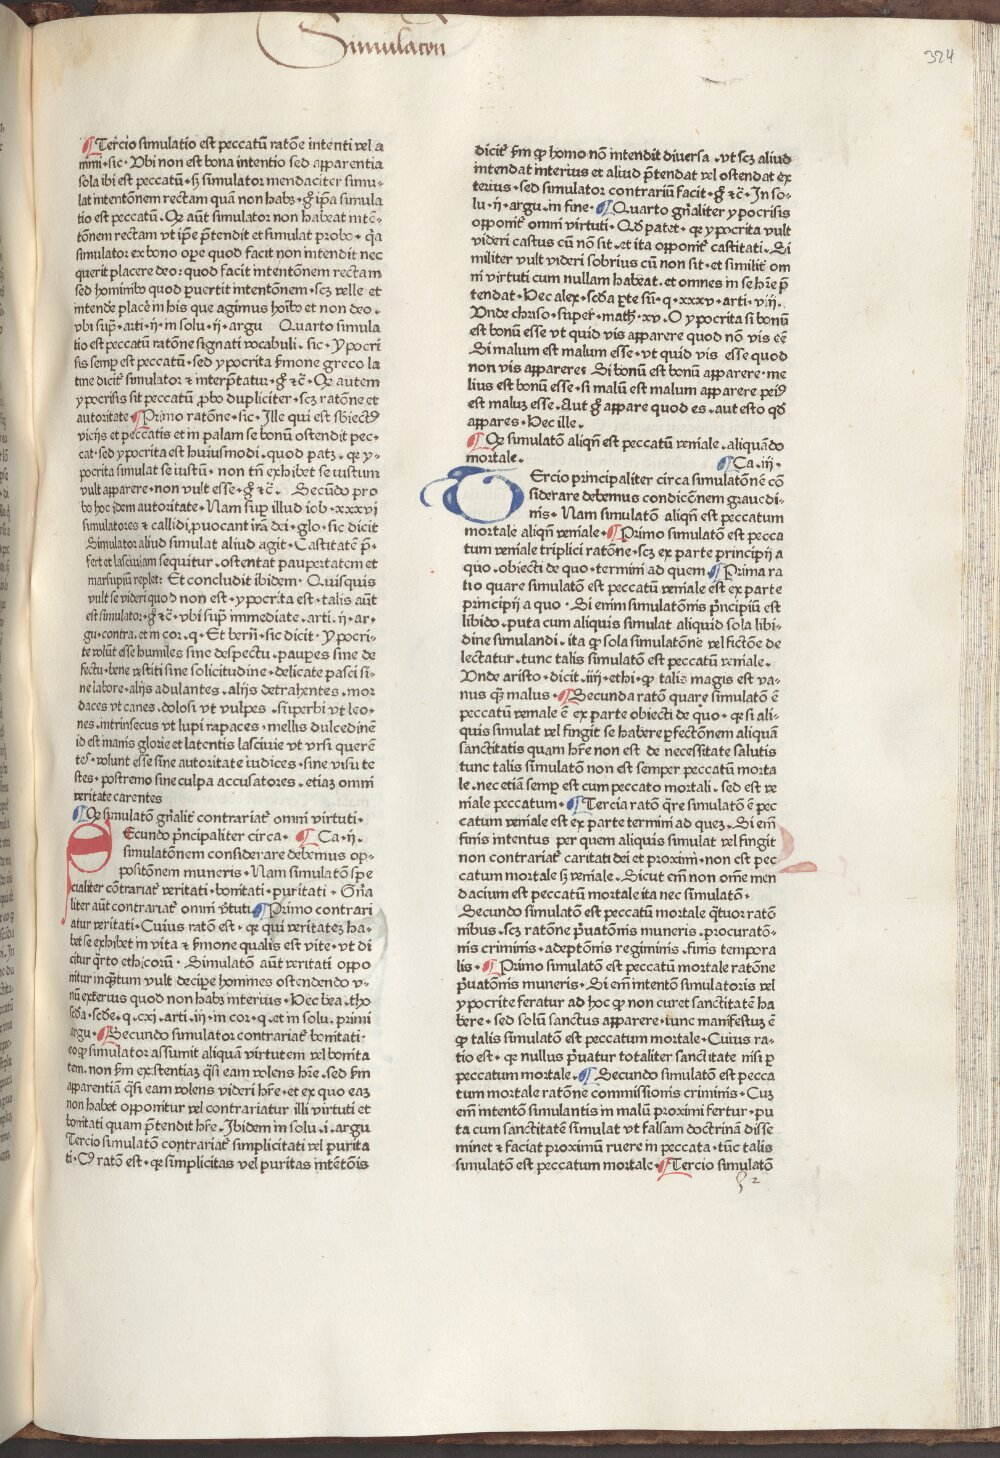 Simulacon
324
¶Tercio simulatio est peccatū ratōne intenti vel a
nimi·sic· Vbi non est bona intentio sed apparentia
sola ibi est peccatū·hͥ simulator mendaciter simu-
lat intentōnem rectam quā non habꝫ·gͦ ip̄a simula
tio est peccatū·Qꝫ aūt simulator non habeat intē-
tōnem rectam vt ip̄e p̄tendit et simulat probo· qͥa
simulator ex bono oꝑe quod facit non intendit nec
querit placere deo: quod facit intentōnem rectam
sed hominibꝰ quod ꝑuertit intentōnem· scꝫ velle et
intende placē in his que agimus hoī̄bꝰ et non deo·
vbi sup̄·arti·ij·in solu·ij·argu Quarto simula
tio est peccatū ratōne signati vocabuli· sic· Ypocri
sis semꝑ est peccatū·sed ypocrita ẜmone greco la
tine diciť simulator ⁊ interp̄tatur·gͦ ⁊c̄·Qꝫ autem
ypocrisis sit peccatū ꝓbo dupliciter·scꝫ ratōne et
autoritate ¶Primo ratōne·sic·Ille qui est sbiectꝰ
vicijs et peccatis et in palam se bonū ostendit pec-
cat·sed ypocrita est huiusmodi·quod patꝫ·qꝛ y-
pocrita simulat se iustū· non tn̄ exhibet se iustum
vult apparere·non vult esse·gͦ ⁊c̄· Secūdo pro
bo hoc idem autoritate·Nam sup illud iob·xxxvi
simulatores ⁊ callidi ꝓuocant irā dei·glo·sic dicit
Simulator aliud simulat aliud agit·Castitatē p̄-
fert et lasciuiam sequitur·ostentat paupertatem et
marsupiū replet: Et concludit ibidem· Quisquis
vult se videri quod non est·ypocrita est·talis aūt
est simulator·gͦ ⁊c̄·vbi sup̄ immediate·arti·ij·ar-
gu·contra·et in cor·q·Et bern̄·sic dicit· Ypocri-
te volūt esse humiles sine despectu·pauꝑes sine de
fectu·bene vestiti sine solicitudine·delicate pasci si-
ne labore·alijs adulantes·alijs detrahentes·mor
daces vt canes·dolosi vt vulpes·superbi vt leo-
nes·intrinsecus vt lupi rapaces·mellis dulcedinē
id est inanis glorie et latentis lasciuie vt vrsi querē
tes·volunt esse sine autoritate iudices·sine visu te
stes·postremo sine culpa accusatores·etiaꝫ omni
veritate carentes
¶Qꝫ simulatō gn̄aliť contrariať omni virtuti·
Secundo p̄ncipaliter circa· ¶Ca·ij·
simulatōnem considerare debemus op-
positōnem muneris·Nam simulatō spe
cialiter cōtrariať veritati·bonitati·puritati·Gn̄a
liter aūt contrariať omni v̄tuti·¶Primo contrari
atur veritati·Cuius ratō est·qꝛ qui veritateꝫ ha-
bet se exhibet in vita ⁊ ẜmone qualis est vite·vt di
citur qͣrto ethicorū· Simulatō aūt veritati oppo
nitur inqͣtum vult deciꝑe hommes ostendendo v-
nū exterius quod non habꝫ interius·Hec bea·tho
scd̄a·scd̄e·q·cxi·arti·iij·in cor·q·et in solu·primi
argu·¶Secundo simulator contrariať bonitati:
eo qꝫ simulator assumit aliquā virtutem vel bonita
tem·non ẜm existentiaꝫ qͣsi eam volens hr̄e·sed ẜm
apparentiā qͣsi eam volens videri hr̄e·et ex quo eaꝫ
non habet opponitur vel contrariatur illi virtuti et
bonitati quam p̄tendit hr̄e·Ibidem in solu·i·argu
Tercio simulatō contrariať simplicitati vel purita
ti·Cꝰ ratō est·qꝛ simplicitas vel puritas intētōis
diciť ẜm qꝫ homo nō intendit diuersa·vt scꝫ aliud
intendat interius et aliud p̄tendat vel ostendat ex
terius·sed simulator contrariū facit·gͦ ⁊c̄·In so-
lu·ij·argu·in fine·¶Quarto gn̄aliter ypocrisis
opponiť omni virtuti·Qd̓ patet·qꝛ ypocrita vult
videri castus cū nō sit·et ita opponiť castitati·Si
militer vult videri sobrius cū non sit·et similiť om
ni virtuti cum nullam habeat·et omnes in se hr̄e p̄
tendat·Hec alex·scd̄a ꝑte sūī·q·xxxv·arti·viij·
Vnde chriso·super·math·xv·O ypocrita si bonū
est bonū esse vt quid vis apparere quod nō vis eē
Si malum est malum esse·vt quid vis esse quod
non vis apparere: Si bonū est bonū apparere·me
lius est bonū esse·si malū est malum apparere peiꝰ
est maluꝫ esse·Aut gͦ appare quod es·aut esto qd̓
appares·Hec ille·
¶Qꝫ simulatō aliqn̄ est peccatū veniale·aliquādo
mortale· ¶Ca·iij·
Tercio principaliter circa simulatōnē cō
siderare debemus condicōnem grauedi-
nis·Nam simulatō aliqn̄ est peccatum
mortale aliqn̄ veniale·¶Primo simulatō est pecca
tum veniale triplici ratōne·scꝫ ex parte principij a
quo·obiecti de quo·termini ad quem ¶Prima ra
tio quare simulatō est peccatū veniale est ex parte
principij a quo·Si enim simulatōnis p̄ncipiū est
libido·puta cum aliquis simulat aliquid sola libi-
dine simulandi·ita qꝫ sola simulatōne vel fictōne de
lectatur·tunc talis simulatō est peccatū veniale·
Vnde aristo·dicit·iiij·ethi·qꝫ talis magis est va-
nus qͣꝫ malus·¶Secunda ratō quare simulatō ē
peccatū veniale ē ex parte obiecti de quo·qꝛ si ali-
quis simulat vel fingit se habere ꝑfectōnem aliquā
sanctitatis quam hr̄e non est de necessitate salutis
tunc talis simulatō non est semper peccatū morta
le·nec etiā semꝑ est cum peccato mortali·sed est ve
niale peccatum·¶Tercia ratō qͣre simulatō ē pec
catum veniale est ex parte termini ad queꝫ·Si em̄
finis intentus per quem aliquis simulat vel fingit
non contrariať caritati dei et proximi·non est pec
catum mortale hͥ veniale·Sicut em̄ non om̄e men
dacium est peccatū mortale ita nec simulatō·
Secundo simulatō est peccatū mortale qͣtuor ratō
nibus·scꝫ ratōne p̄uatōnis muneris·procuratō-
nis criminis·adeptōnis regiminis·finis tempora
lis·¶Primo simulatō est peccatū mortale ratōne
p̄uatōnis muneris·Si em̄ intentō simulatoris vel
ypocrite feratur ad hoc qꝫ non curet sanctitatē ha
bere·sed solū sanctus apparere·tunc manifestuꝫ ē
qꝫ talis simulatō est peccatum mortale·Cuius ra-
tio est·qꝛ nullus p̄uatur totaliter sanctitate nisi ꝑ
peccatum mortale·¶Secundo simulatō est pecca
tum mortale ratōne commissiōnis criminis·Cuꝫ
em̄ intentō simulantis in malū proximi fertur·pu
ta cum sanctitatē simulat vt falsam doctrinā disse
minet ⁊ faciat proximū ruere in peccata·tūc talis
simulatō est peccatum mortale·¶Tercio simulatō